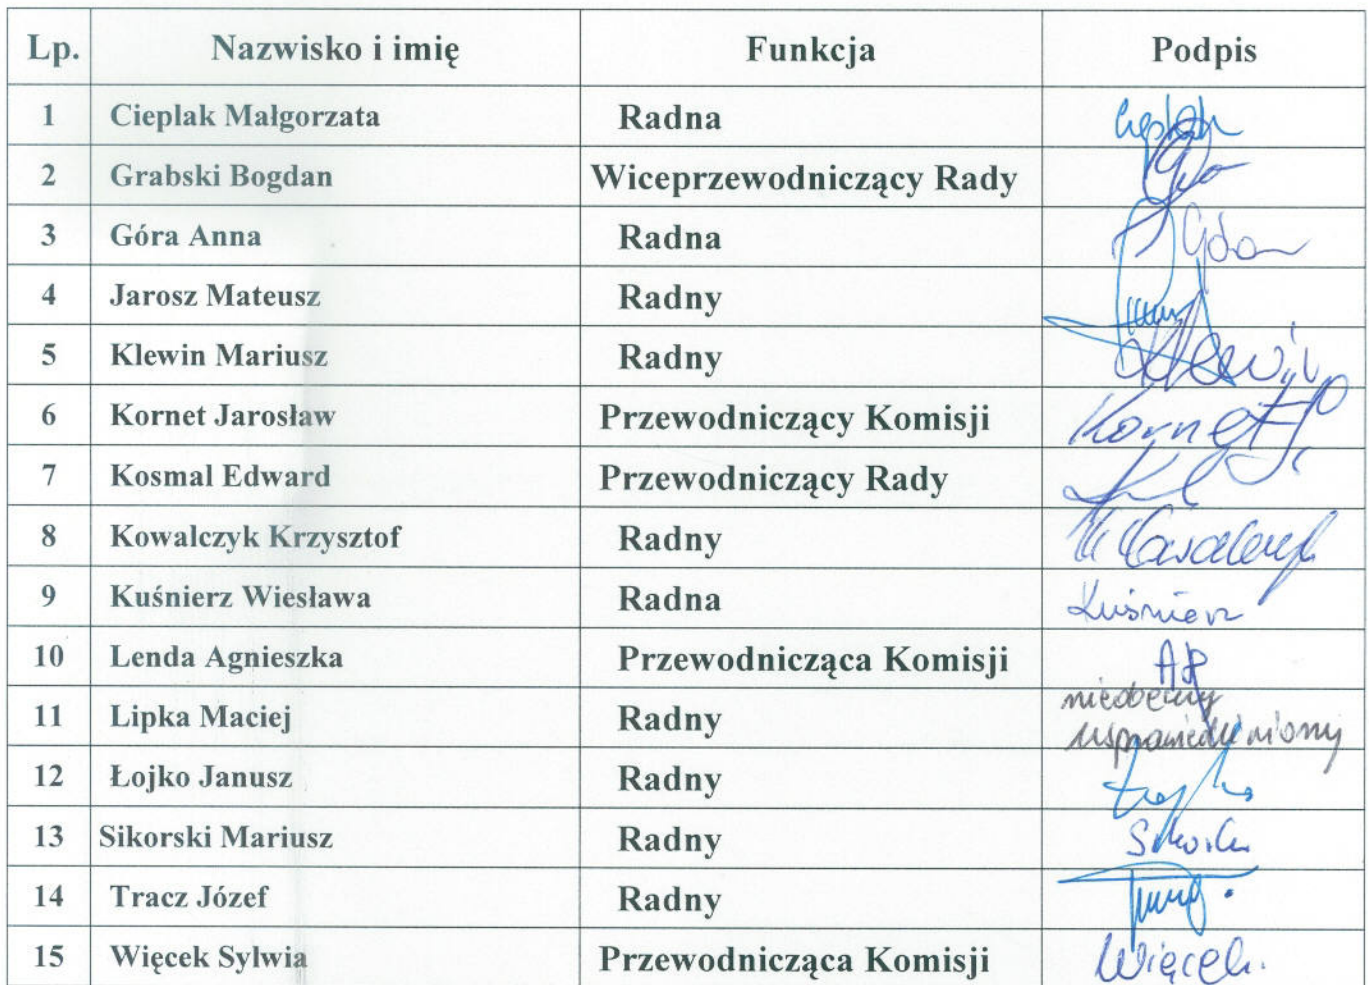 Lp. Nazwisko i imię Funkcja Podpis
1 Cieplak Małgorzata Radna
2 Grabski Bogdan Wiceprzewodniczący Rady
3 Góra Anna Radna Góra
4 Jarosz Mateusz Radny
5 Klewin Mariusz Radny Klewin
6 Kornet Jarosław Przewodniczący Komisji Kornet J.
7 Kosmal Edward Przewodniczący Rady
8 Kowalczyk Krzysztof Radny K Kowalczyk
9 Kuśnierz Wiesława Radna Kuśnierz
10 Lenda Agnieszka Przewodnicząca Komisji
11 Lipka Maciej Radny nieobecny
usprawiedliwiony
12 Łojko Janusz Radny
13 Sikorski Mariusz Radny
14 Tracz Józef Radny
15 Więcek Sylwia Przewodnicząca Komisji Więcek